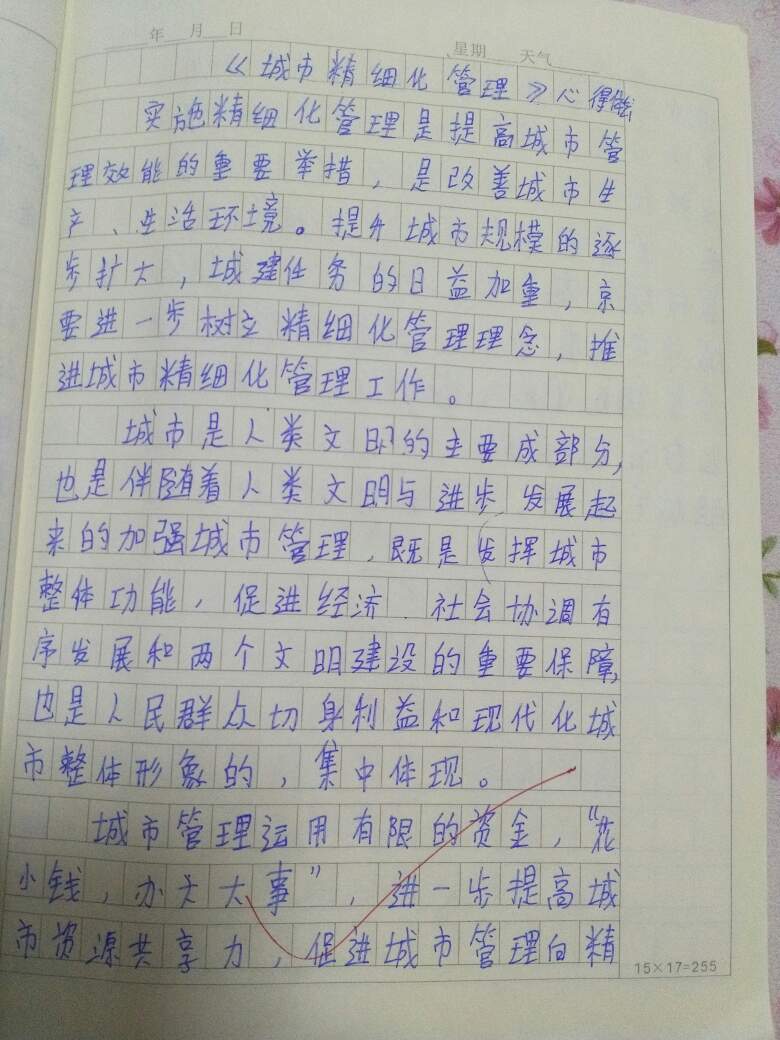 年 月 日
星期 天气
《城市精细化管理》心得体会
实施精细化管理是提高城市管
理效能的重要举措，是改善城市生
产、生活环境。提升城市规模的逐
步扩大，城建任务的日益加重，京
要进一步树立精细化管理理念，推
进城市精细化管理工作。
城市是人类文明的主要成部分，
也是伴随着人类文明与进步发展起
来的加强城市管理，既是发挥城市
整体功能，促进经济、社会协调有
序发展和两个文明建设的重要保障，
也是人民群众切身利益和现代化城
市整体形象的，集中体现。
城市管理运用有限的资金，“花
小钱，办大事”，进一步提高城
市资源共享力，促进城市管理向精
15×17=255